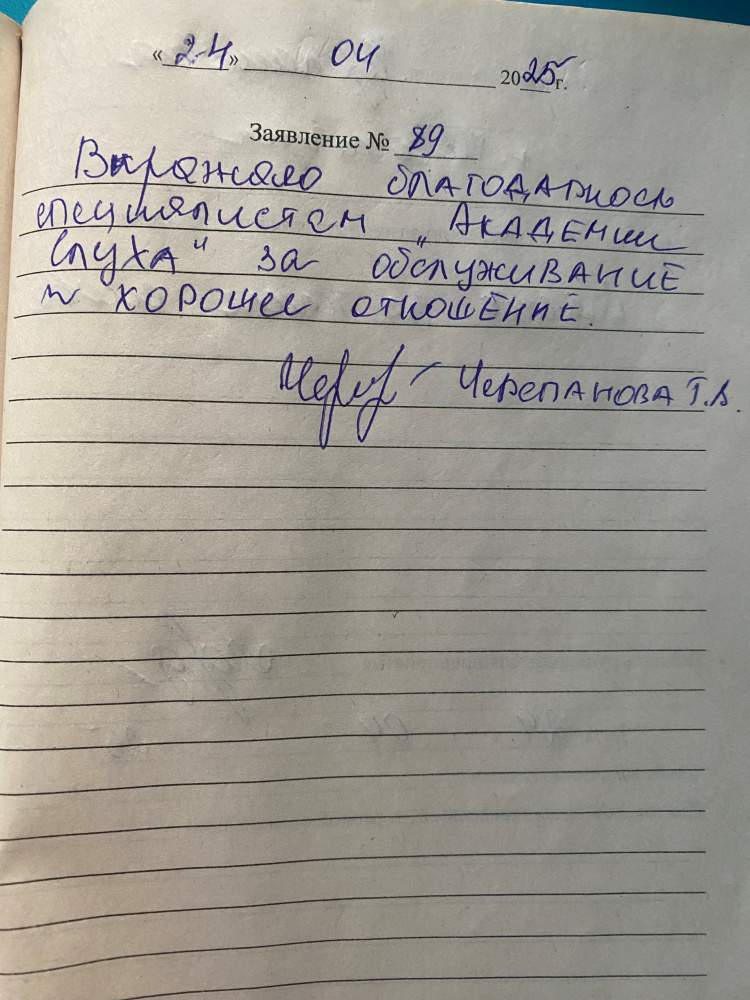 «24» 04 2025 г.
Заявление № 89
Выражаю благодарность
специалистам „Академии
Слуха" за обслуживание
и хорошее отношение.
Черепанова Т.В.